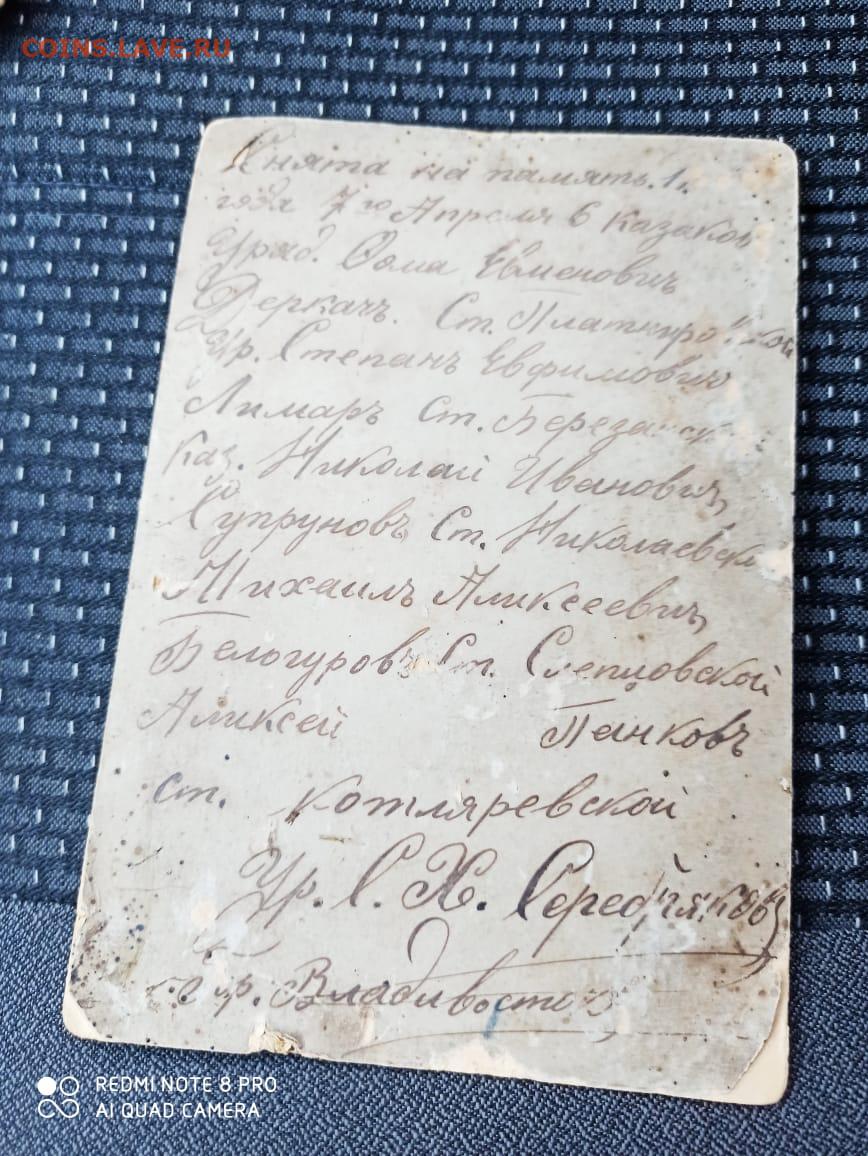 COINS.LAVE.RU
Снята на память. 1
года 7го Апреля 6 казаков
Уряд. Фома Евменович
Деркачъ. Ст.
Ур. Степанъ Евфимович
Лимаръ Ст.
Каз. Николай Иванович
Супруновъ Ст. Николаевск
Михаилъ Аликсеевич
Белогуровъ Ст. Слепцовской
Аликсей Панковъ
ст. котляревской
Ур. С. Х. Серебряковъ
гор. Владивостокъ
REDMI NOTE 8 PRO
AI QUAD CAMERA